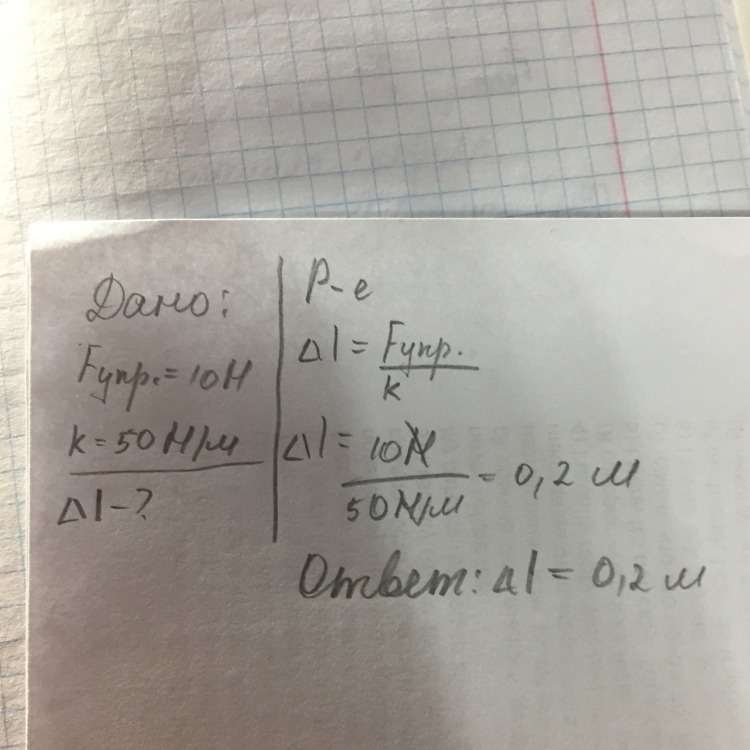 Дано:
Fупр. = 10Н
k = 50 Н/м
Δl - ?
Р-е
Δl = Fупр. / k
Δl = 10Н / 50Н/м = 0,2 м
Ответ: Δl = 0,2 м